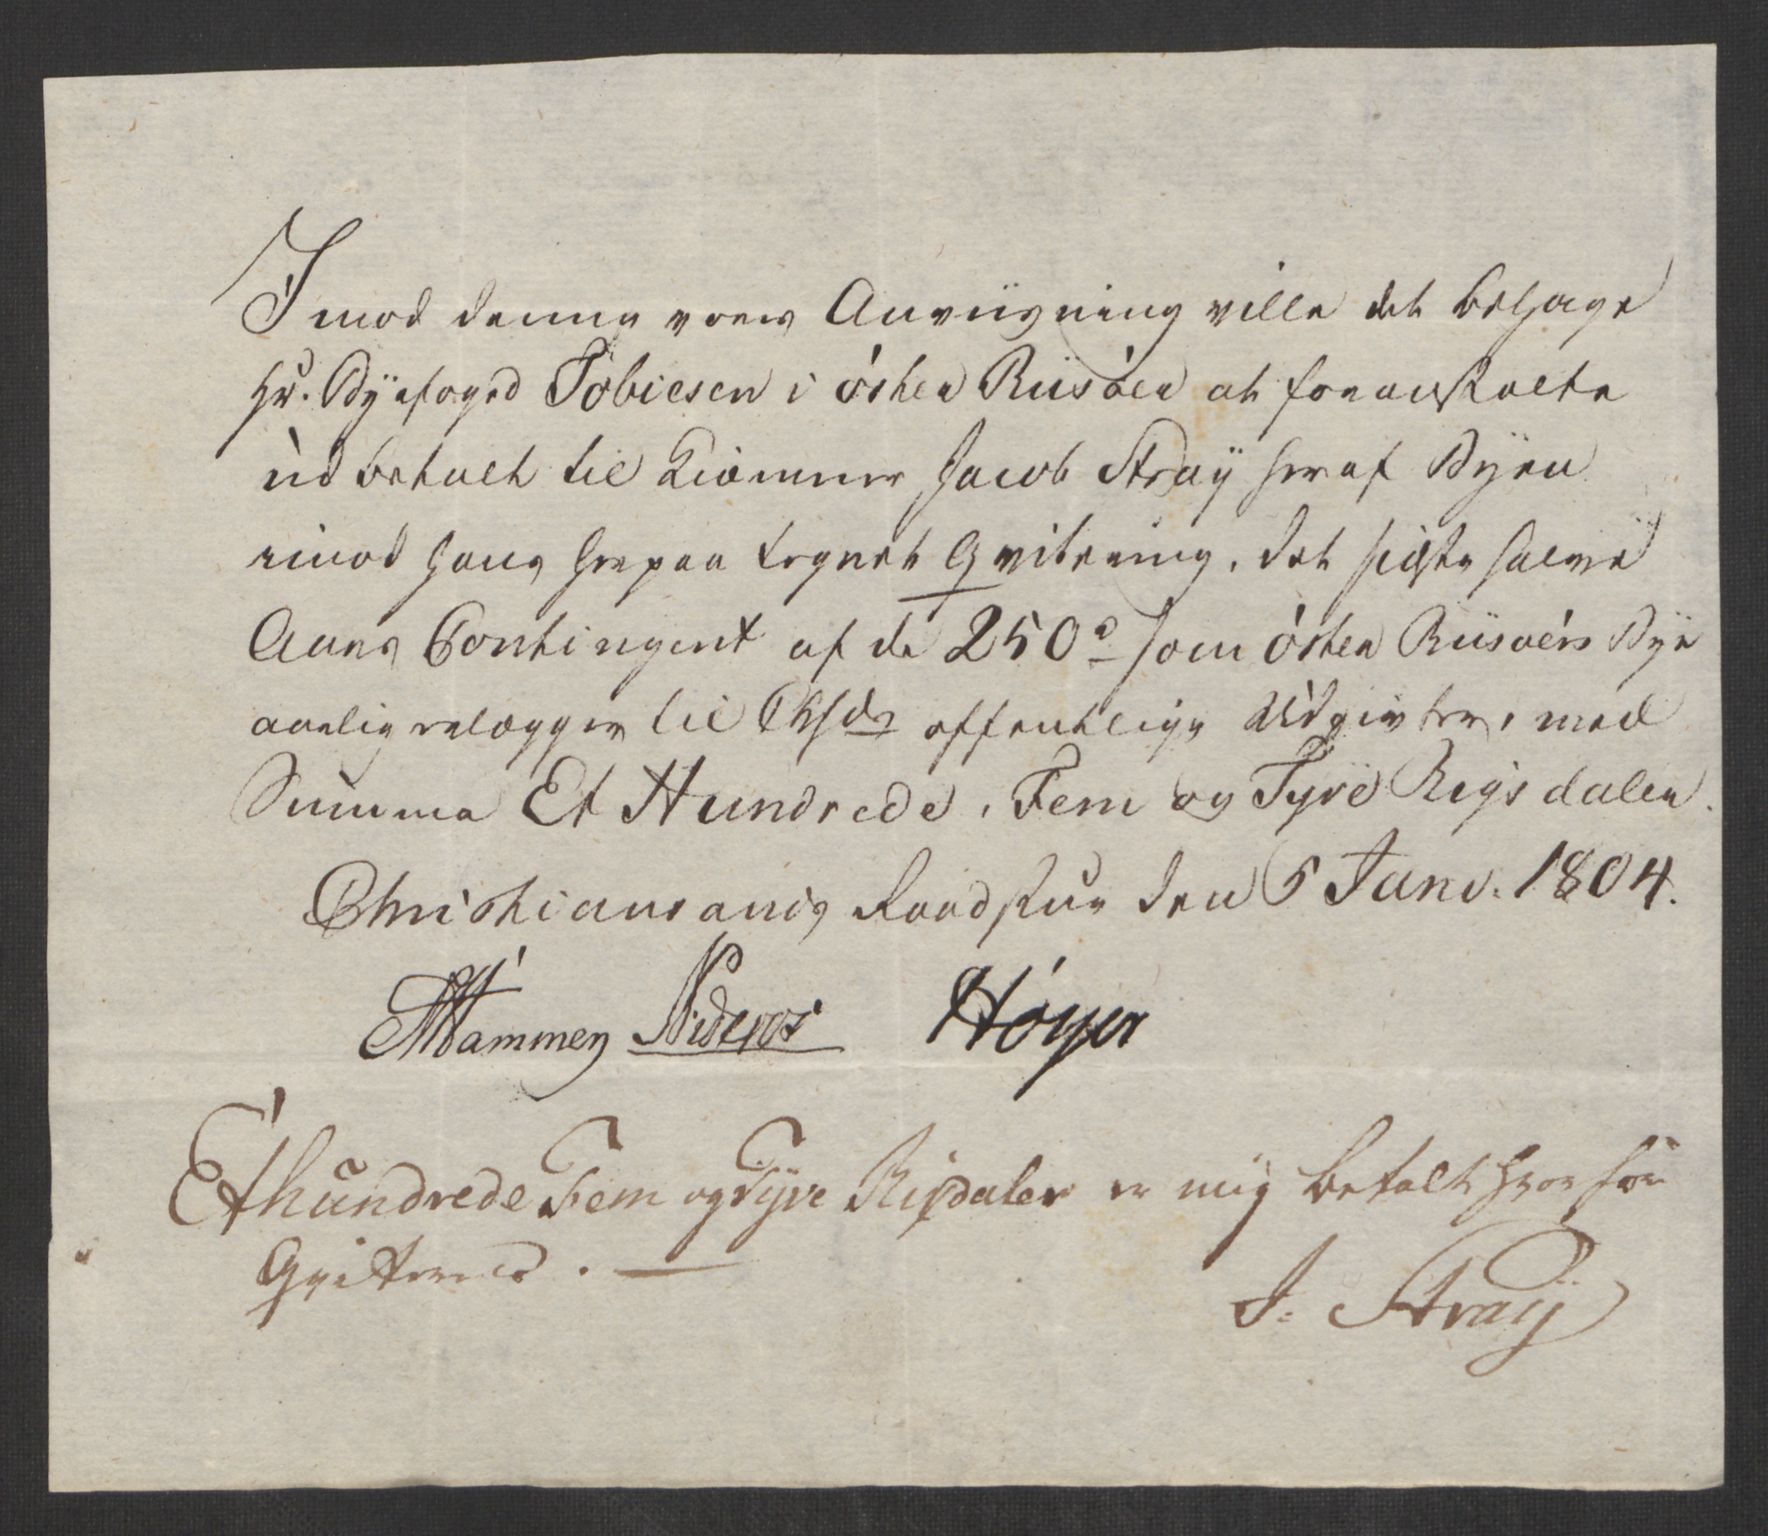 Imod denne vores Anviisning ville det behage
Hr. Byefoged Tobiesen i øster Riisöer at foranstalte
udbetalt til Kiæmner Jacob Straÿ her af Byen
imod hans herpaa tegnet Qvitering, det sidste halve
Aars Contingent af de 250 som øster Riisöers Bye
aarlig erlægger til offentlige Udgivter, med
Summa Et Hundrede, Fem og Tyve Rigsdaler.
Christiansands Raadstue den 5 Janv. 1804.
Mammen Höyer
Et hundrede Fem og Tÿve Rigsdaler er mig betalt hvorfor
Qviteres.
J. Straÿ